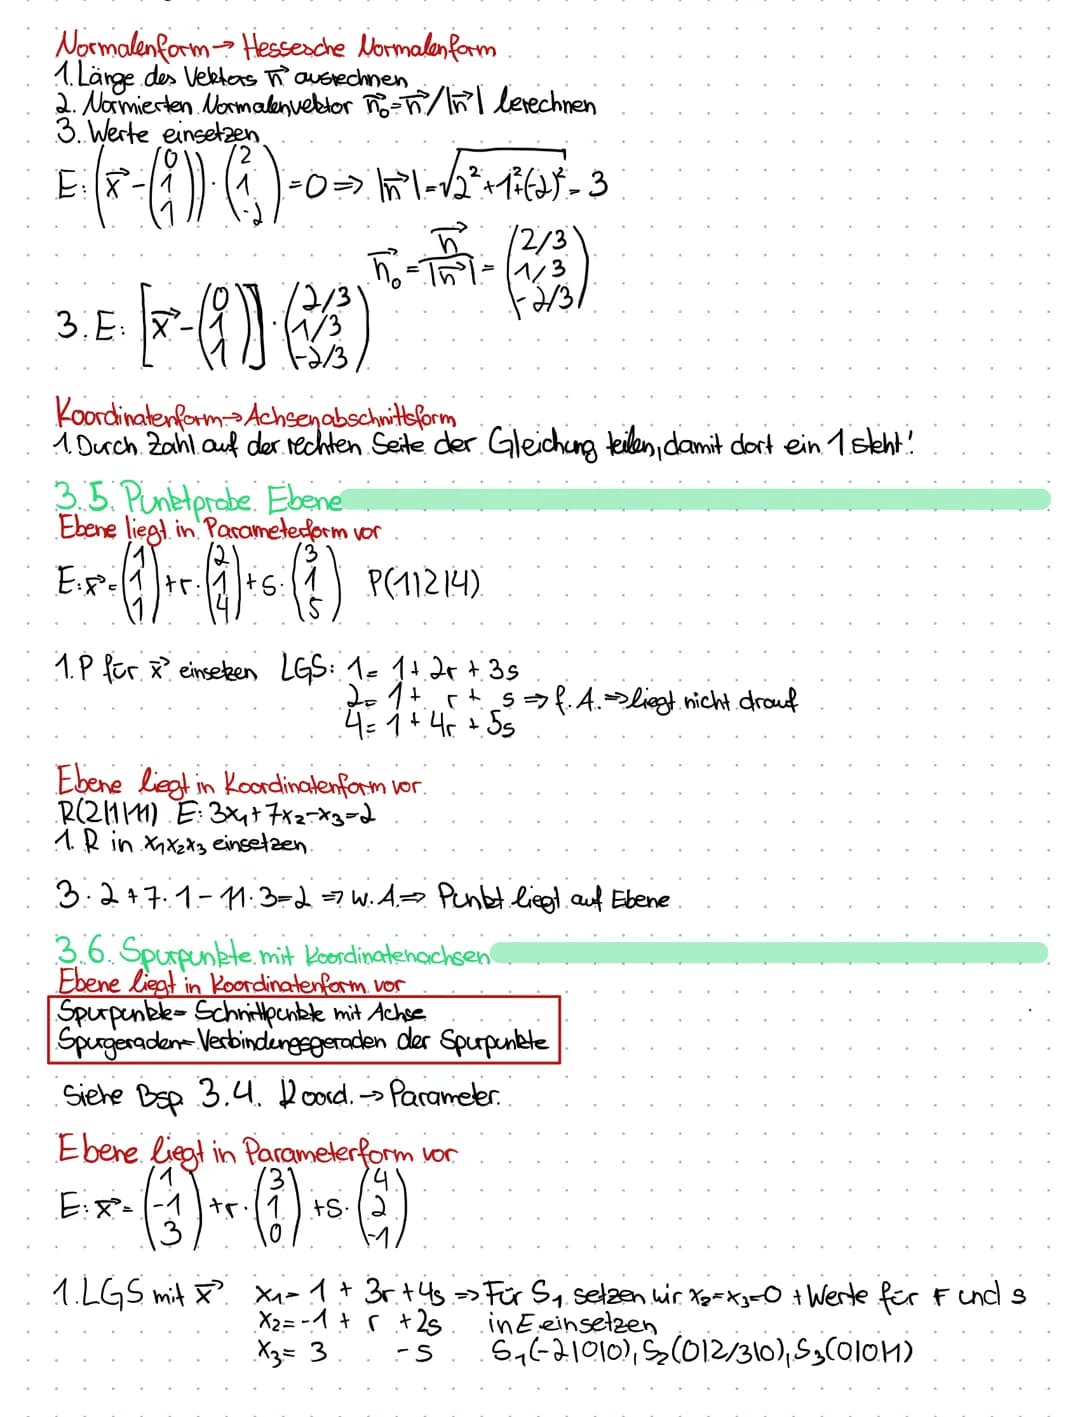 Normalenform → Hessesche Normalenform
1. Länge des Vektors n⃗ ausrechnen
2. Normierten Normalenvektor n⃗₀ = n⃗/|n⃗| berechnen
3. Werte einsetzen
E: (x⃗ - (0 1 1)) · (2 1 -2) = 0 ⇒ |n⃗| = √2² + 1² + (-2)² = 3
n⃗₀ = n⃗/|n⃗| = (2/3 1/3 -2/3)
3. E: [x⃗ - (0 1 1)] · (2/3 1/3 -2/3)
Koordinatenform → Achsenabschnittsform
1. Durch Zahl auf der rechten Seite der Gleichung teilen, damit dort ein 1 steht!
3.5. Punktprobe Ebene
Ebene liegt in Parameterform vor
E: x⃗ = (1 1 1) + r · (2 1 4) + s · (3 1 5) P(1|2|4)
1. P für x⃗ einsetzen LGS: 1 = 1 + 2r + 3s
2 = 1 + r + s ⇒ f. A. ⇒ liegt nicht drauf
4 = 1 + 4r + 5s
Ebene liegt in Koordinatenform vor
R(2|1|11) E: 3x₁ + 7x₂ - x₃ = 2
1. R in x₁x₂x₃ einsetzen
3 · 2 + 7 · 1 - 11 · 3 = 2 ⇒ w. A. ⇒ Punkt liegt auf Ebene
3.6. Spurpunkte mit Koordinatenachsen
Ebene liegt in Koordinatenform vor
Spurpunkte = Schnittpunkte mit Achse
Spurgeraden = Verbindungsgeraden der Spurpunkte
Siehe Bsp 3.4. Koord. → Parameter.
Ebene liegt in Parameterform vor
E: x⃗ = (1 -1 3) + r · (3 1 0) + s · (4 2 -1)
1. LGS mit x⃗ x₁ = 1 + 3r + 4s ⇒ Für S₁ setzen wir x₂ = x₃ = 0 + Werte für r und s
x₂ = -1 + r + 2s in E einsetzen
x₃ = 3 - s S₁(-2|0|0), S₂(0|2/3|0), S₃(0|0|1)